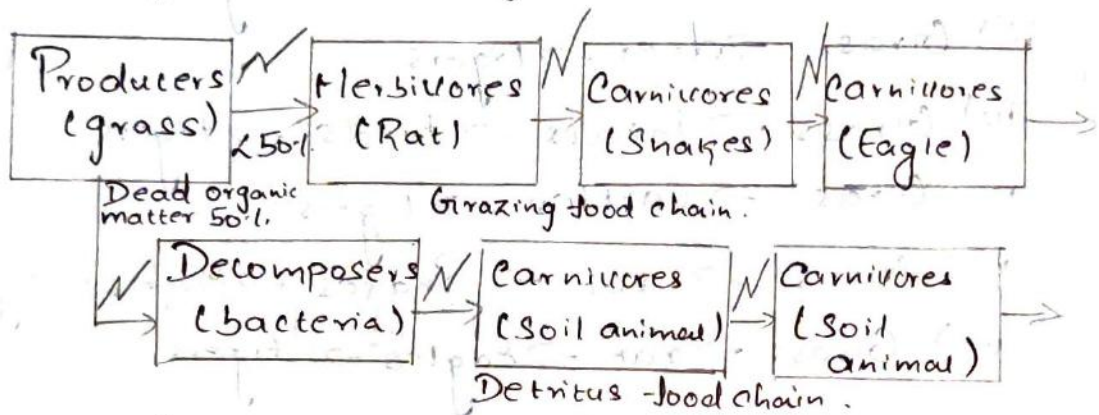 Producers
(grass)
<50%
Herbivores
(Rat)
Carnivores
(Snakes)
Carnivores
(Eagle)
Dead organic
matter 50%.
Grazing food chain.
Decomposers
(bacteria)
Carnivores
(Soil animal)
Carnivores
(Soil
animal)
Detritus food chain.